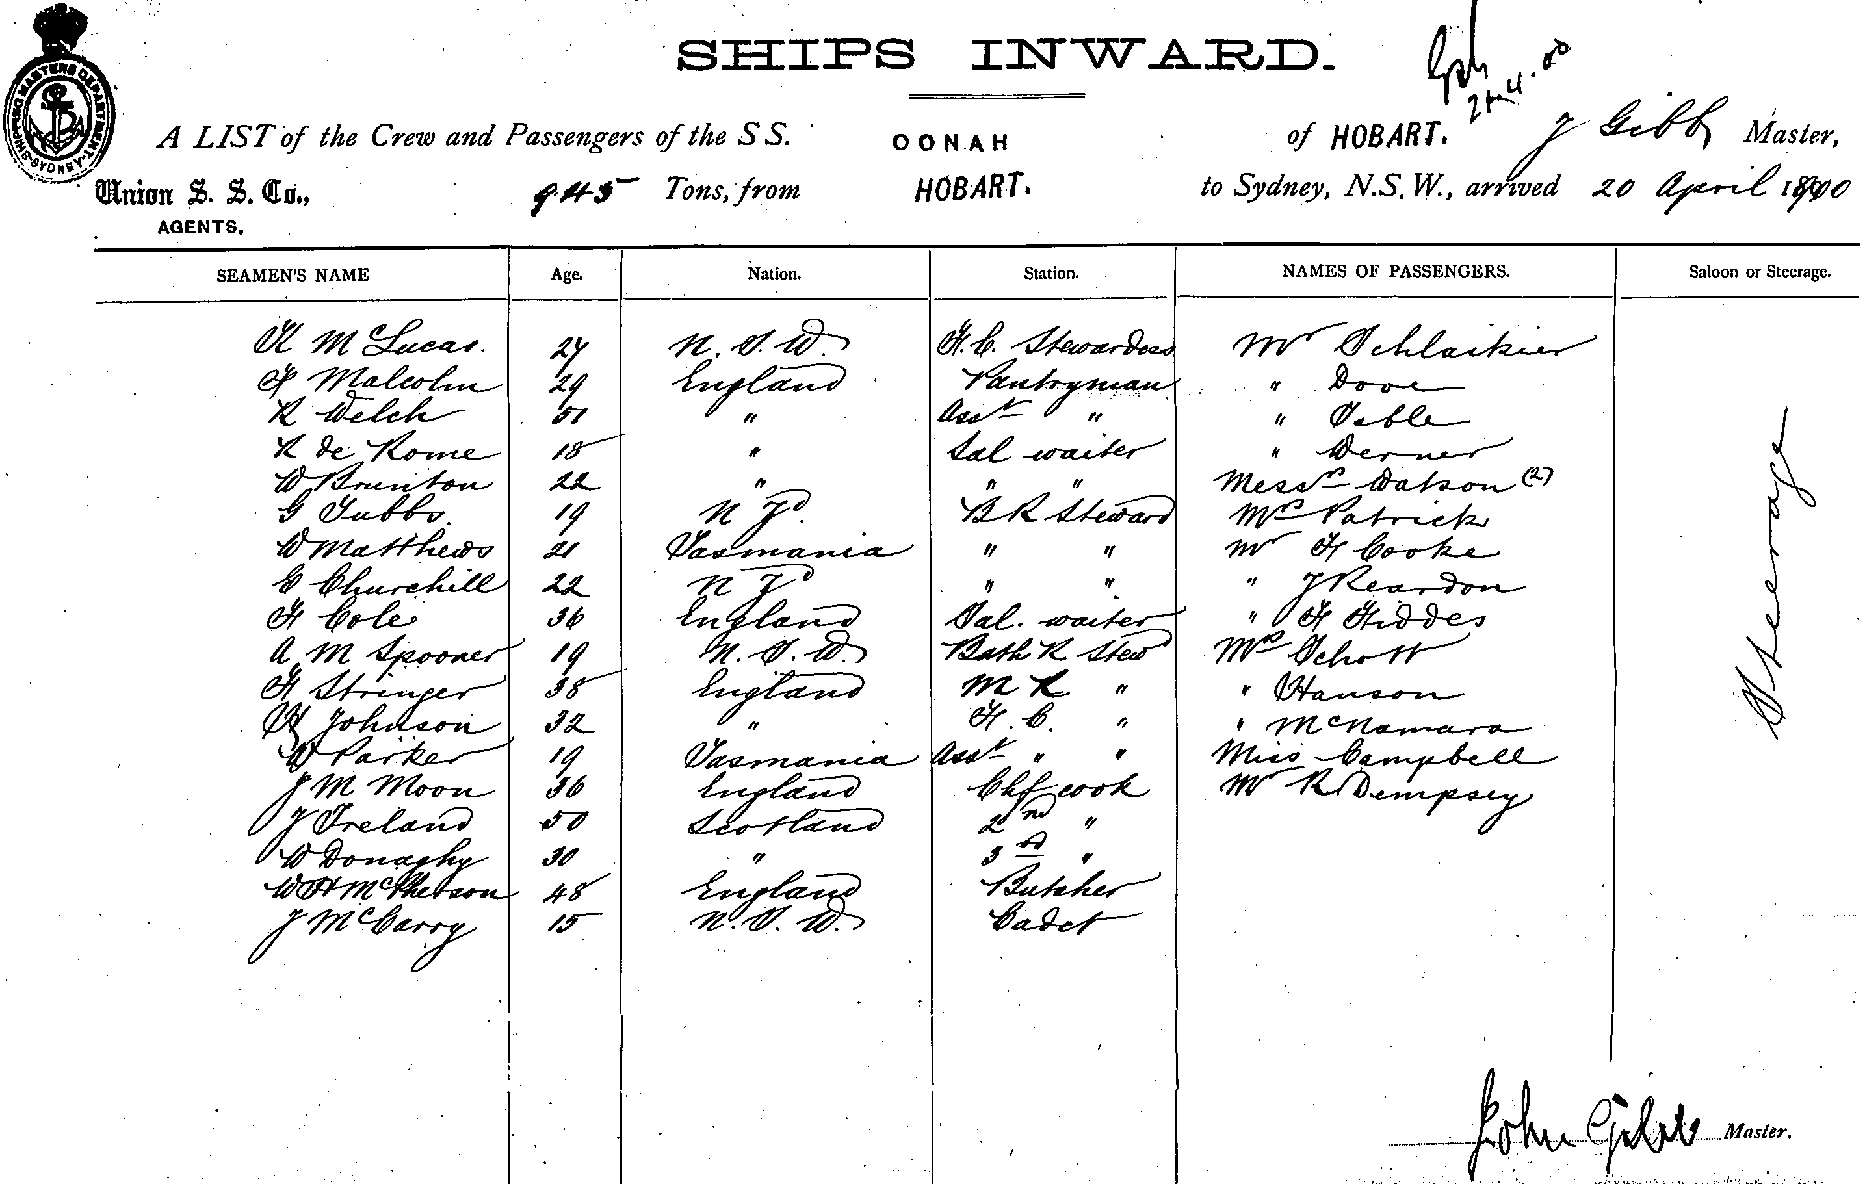 SHIPS INWARD.
A LIST of the Crew and Passengers of the S S. OONAH of HOBART. J Gibb Master,
Union S. S. Co., 945 Tons, from HOBART. to Sydney, N.S.W., arrived 20 April 1900
AGENTS.
SEAMEN'S NAME Age. Nation. Station. NAMES OF PASSENGERS. Saloon or Steerage.
K McLucas. 27 N. S. W. F. C. Stewardess Mr Schlaikier
F Malcolm 29 England Pantryman " Dove
R Welch 51 " Asst " "
R de Rome 18 " Sal waiter " Werner
W Brunton 22 " " " Messrs Watson (2)
G Tubbs. 19 N Zd. B R Steward Mrs Patrick
W Matthews 21 Tasmania " " Mr H Cooke
C Churchill 22 N Zd " " " J Reardon
H Cole 36 England Sal. waiter " F Fiddes
A M Spooner 19 N. S. W. Bath R Stewd Mrs Schott
H Stringer 38 England M R " " Hanson
H Johnson 32 " F. C. " " McNamara
W Parker 19 Tasmania Asst " " Miss Campbell
J M Moon 36 England Chf cook Mr R Dempsey
J Ireland 50 Scotland 2nd "
W Donaghy 30 " 3rd "
W H McPherson 48 England Butcher
J McCarry 15 N. S. W. Cadet
Steerage
John Gibb Master.